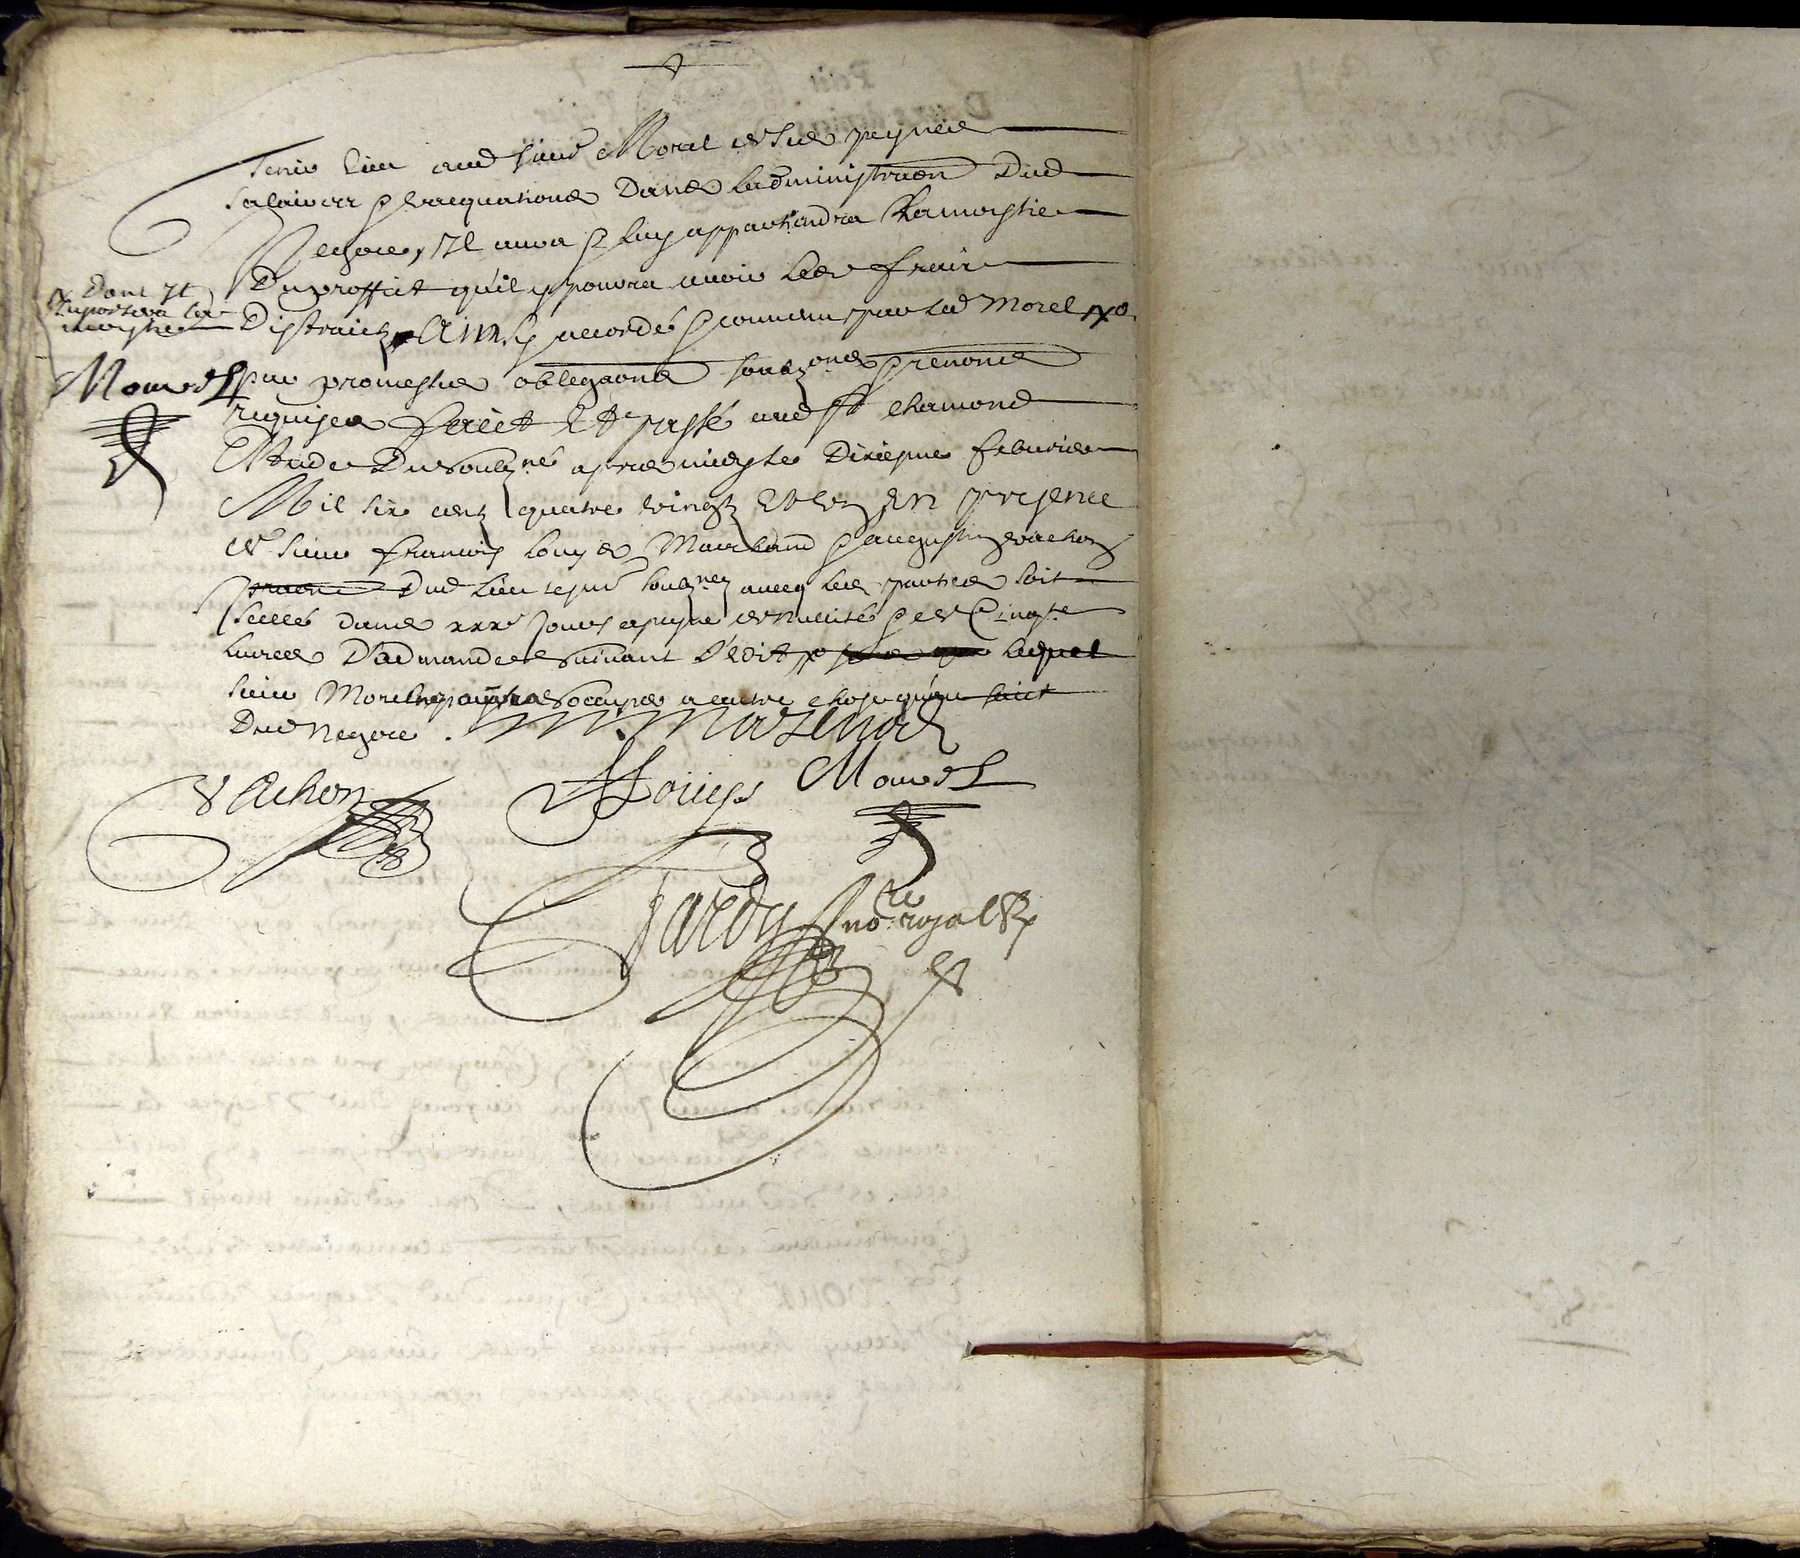 tenir lieu aud sieur Morel de ses peynes
salaires & vacquations dans ladministraon dud
Negoce, Il aura & luy appartiendra la moytie
Du proffict qu'il y pourra avoir les fraix
Distraictz Ainsy accordés & convenu par led Morel
x Dont Il
suportera la
moytie
Mourel
par promesses obligaons soubzons & renons
requises Faict Et passé aud St chamond
Estude Du soubzné apres midy le Dixiesme febvrier
Mil six centz quatre vingtz Et un En presence
de sieurs francois Louys Marchand & augustin vachon
Dud lieu tesms soubznez avecq les parties soit
scellé dans xxxe jours a peyne de nullité & de Cinqte
livres D'admande suivant L'edit lequel
sieur Morel ne pourra s'occuper a autre chose qu'au faict
Dud negoce . M. Mazenod
Vachon
F Louys Mourel
Jardy nore royal R